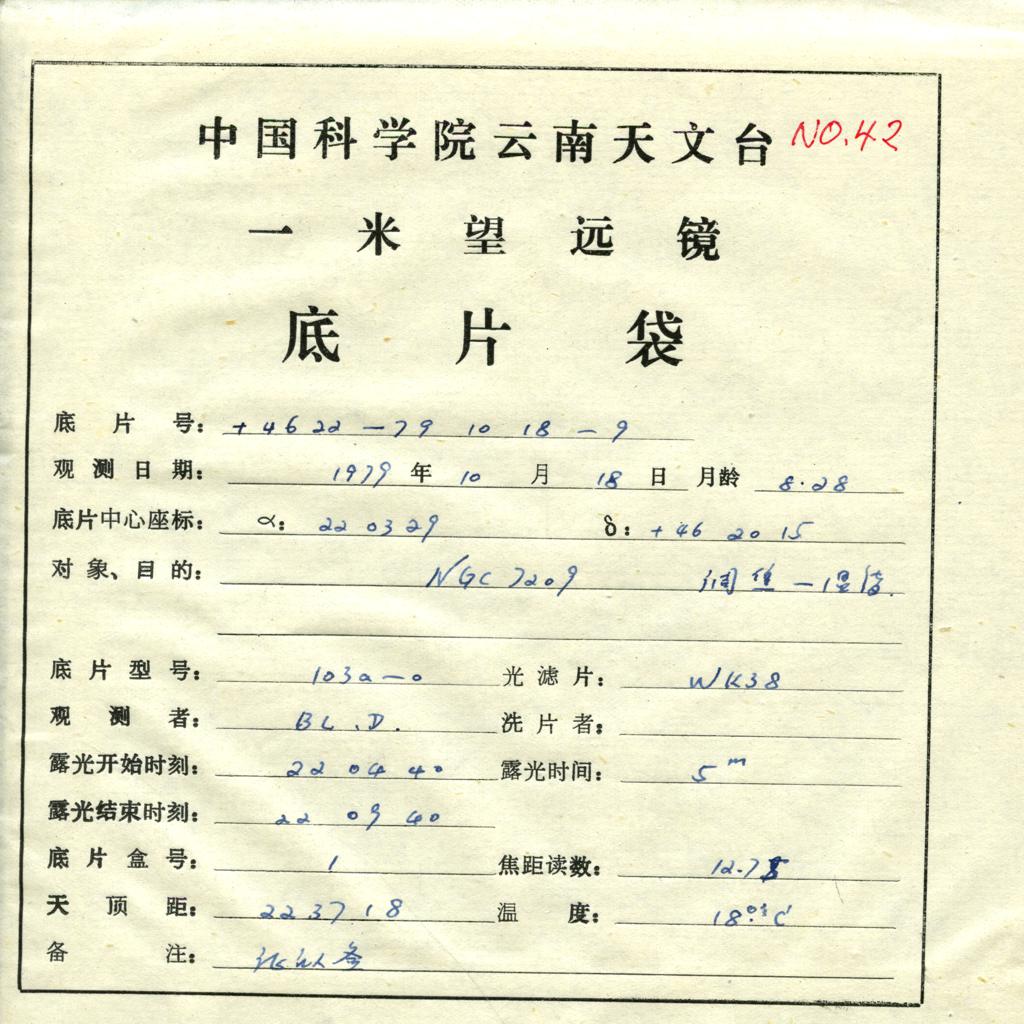 中国科学院云南天文台 NO.42
一米望远镜
底片袋
底片号: +4622-791018-9
观测日期: 1979年10月18日 月龄 8.28
底片中心座标: α: 22 03 29 δ: +46 20 15
对象、目的: NGC 7209
底片型号: 103a-o 光滤片: WK38
观测者: BL.D. 洗片者:
露光开始时刻: 22 04 40 露光时间: 5m
露光结束时刻: 22 09 40
底片盒号: 1 焦距读数: 12.75
天顶距: 22 37 18 温度:
备注: